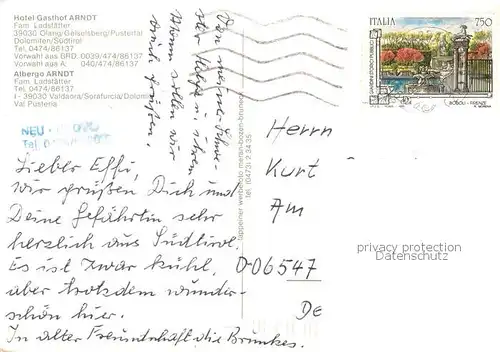 Hotel Gasthof ARNDT
Fam. Ladstätter
39030 Olang/Geiselsberg/Pustertal
Dolomiten/Südtirol
Tel. 0474/86137
Vorwahl aus BRD. 0039/474/86137
Vorwahl aus A: 040/474/86137
Albergo ARNDT
Fam. Ladstätter
Tel. 0474/86137
I - 39030 Valdaora/Sorafurcia/Dolomiti
Val Pusteria
NEU
Tel.
Von meiner Schwe-
ster
in ihrem
sollen wir
Euch grüßen.
Lieber Effi,
wir grüßen Dich und
Deine Gefährtin sehr
herzlich aus Südtirol.
Es ist zwar kühl,
aber trotzdem wunder-
schön hier.
In alter Freundschaft die Brunkes.
tappeiner werbefoto meran-bozen-brunnen
tel. (0473) 2 34 35
ITALIA 750
BOBOLI - FIRENZE
Herrn
Kurt
Am
D-06547
De
privacy protection
Datenschutz